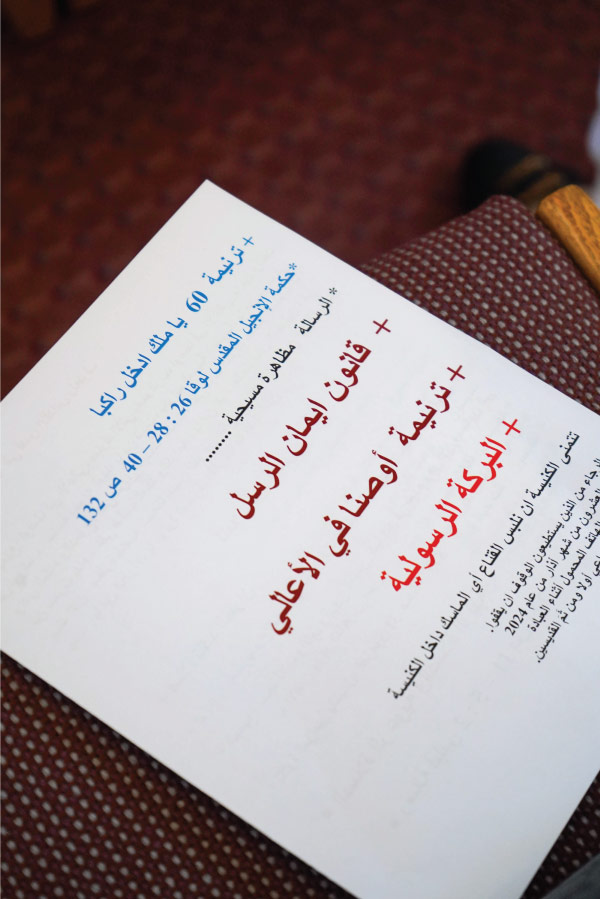 + ترنيمة 60 يا ملك ادخل راكبا
*حكمة الإنجيل المقدس لوقا 26 : 28 – 40 ص 132
* الرسالة مظاهرة مسيحية ........
+ قانون ايمان الرسل
+ ترنيمة أوصنا في الأعالي
+ البركة الرسولية
تتمنى الكنيسة ان تلبس القناع أي الماسك داخل الكنيسة
الرجاء من الذين يستطيعون الوقوف ان يقفوا.
العشرون من شهر آذار من عام 2024
الهاتف المحمول اثناء العبادة
اولا ومن ثم القديسين.